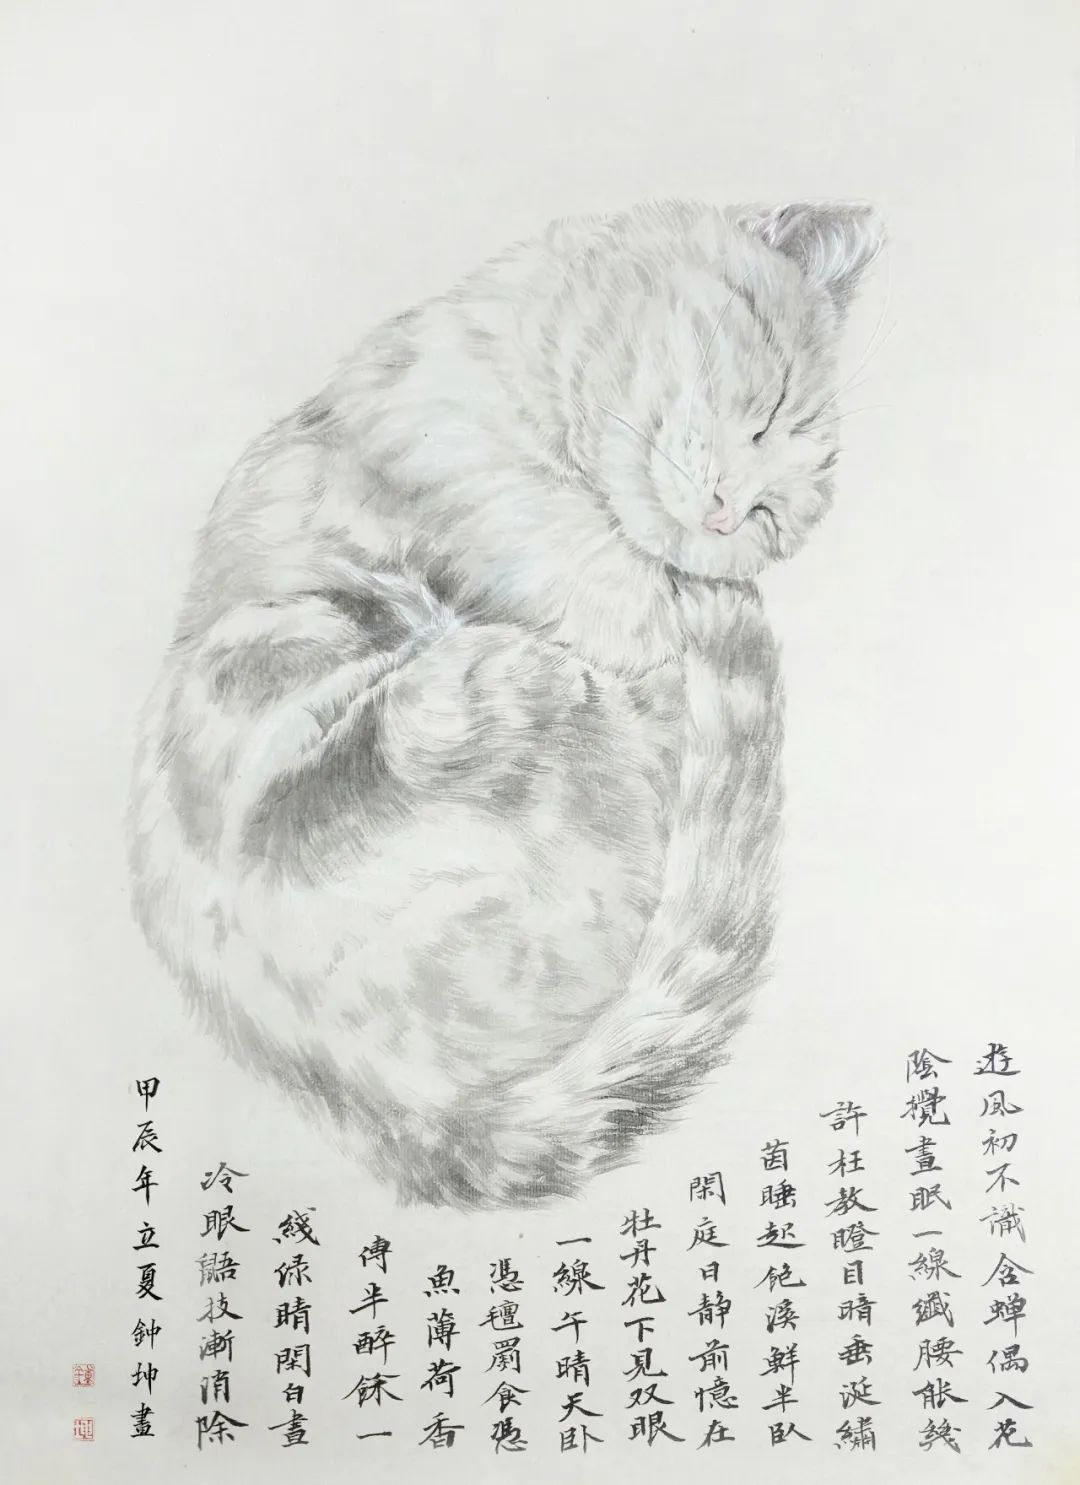 遊風初不識含蝉偶入花
陰攪晝眠一線纖腰能幾
許枉教瞪目暗垂涎繡
茵睡起飽溪鮮半臥
閑庭日静前憶在
牡丹花下見双眼
一線午晴天卧
憑氊罽食憑
魚薄荷香
傳半醉餘一
綫緑晴閑白晝
冷眼鼯技漸消除
甲辰年立夏鈡坤畫